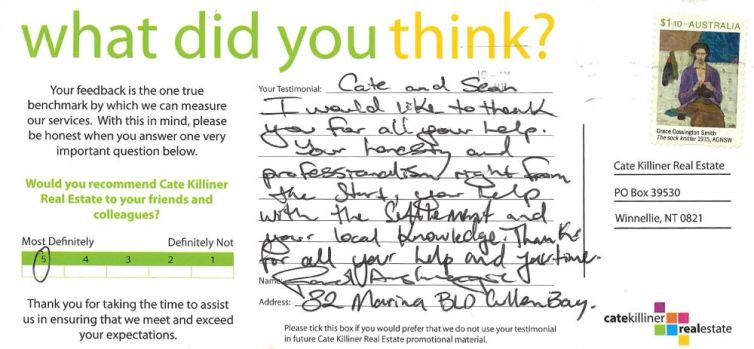 what did you think?
Your feedback is the one true
benchmark by which we can measure
our services. With this in mind, please
be honest when you answer one very
important question below.
Would you recommend Cate Killiner
Real Estate to your friends and
colleagues?
Most Definitely Definitely Not
5 4 3 2 1
Thank you for taking the time to assist
us in ensuring that we meet and exceed
your expectations.
Your Testimonial: Cate and Sean
I would like to thank
you for all your help.
Your honesty and
professionalism right from
the start, your help
with the Settlement and
your local knowledge. Thanks
for all your help and your time.
Name:
Address: 82 Marina BLD Cullen Bay.
Please tick this box if you would prefer that we do not use your testimonial
in future Cate Killiner Real Estate promotional material.
$1.10 AUSTRALIA
Grace Cossington Smith
The sock knitter 1915, AGNSW
Cate Killiner Real Estate
PO Box 39530
Winnellie, NT 0821
catekilliner
realestate